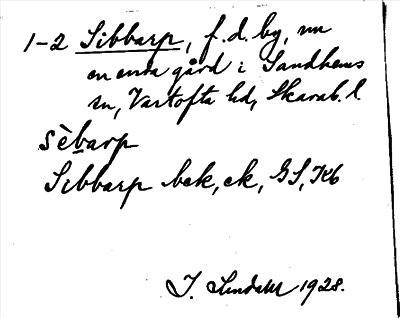 1-2 Sibbarp, f.d. by, nu
en enda gård i Sandhems
sn, Vartofta hd, Skarab. l.
sèbarp
Sibbarp bek, ek, GS, Kb
J. 1928.